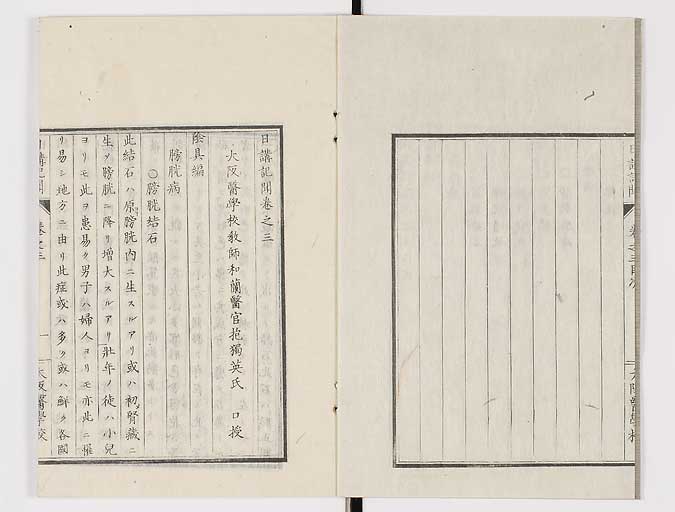 日講記聞卷之三目次
大阪醫學校
日講記聞卷之三
大阪醫學校敎師和蘭醫官抱獨英氏 口授
陰具編
膀胱病
○膀胱結石
此結石ハ原膀胱內ニ生スルアリ或ハ初腎臓ニ
生ヲ膀胱ニ降リ增大スルアリ壯年ノ徒ハ小兒
ヨリモ此ヲ患易ク男子ハ婦人ヨリモ亦此ニ罹
リ易シ地方ニ由リ此症或ハ多ク或ハ鮮ク各國
日講記聞 卷之三 一 大阪醫學校